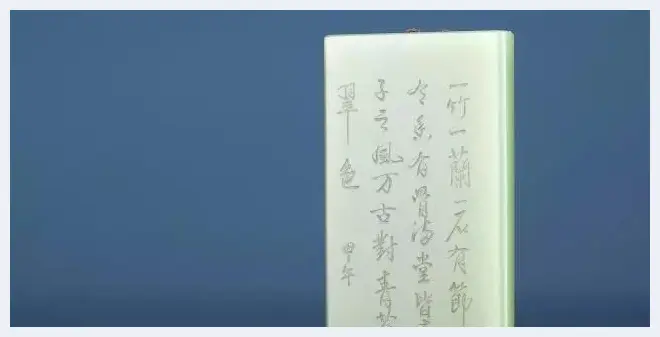 一竹一蘭一石有節
香有骨满堂皆
子之風万古對青
翠色
甲午